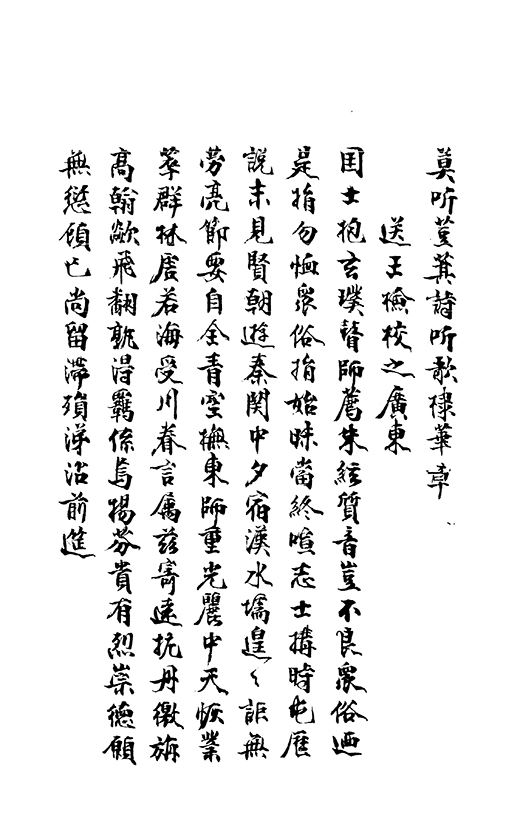 莫听萱萁詩听歌棣華章
送王檢校之廣東
国士抱玄璞瞽師薦朱絃質音豈不良眾俗迺
是指勿恤眾俗指始昧當終喧志士搆時屯歷
說未見賢朝遊秦関中夕宿漢水壖遑〻詎無
勞亮節要自全青空撫東師重光麗中天恢業
萃群林居若海受川眷言屬兹寄速抗丹徼旃
髙翰欻飛翻孰淂羈係焉揚芬貴有烈崇德願
無愆顧已尚留滯殞涕沿前進